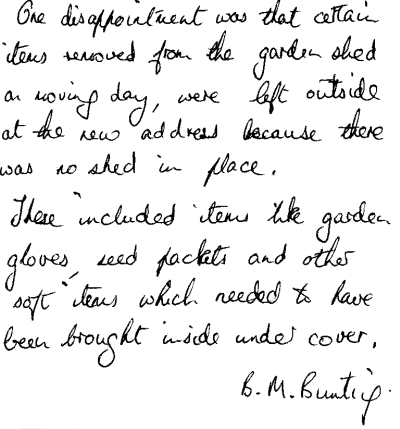 One disappointment was that certain
items removed from the garden shed
on moving day, were left outside
at the new address because there
was no shed in place.
These included items like garden
gloves, seed packets and other
soft items which needed to have
been brought inside under cover.
B. M. Bunting.